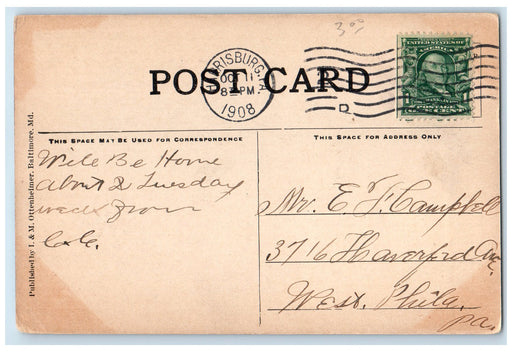 3.00
HARRISBURG, PA.
OCT 11
8 PM
1908
POST CARD
UNITED STATES OF AMERICA
POSTAGE
ONE CENT
THIS SPACE MAY BE USED FOR CORRESPONDENCE
THIS SPACE FOR ADDRESS ONLY
Will Be Home
About 2 Tuesday
week from
Mr. E. F. Campbell
3716 Haverford Ave,
West. Phila.
Pa.
Published by I. & M. Ottenheimer, Baltimore, Md.